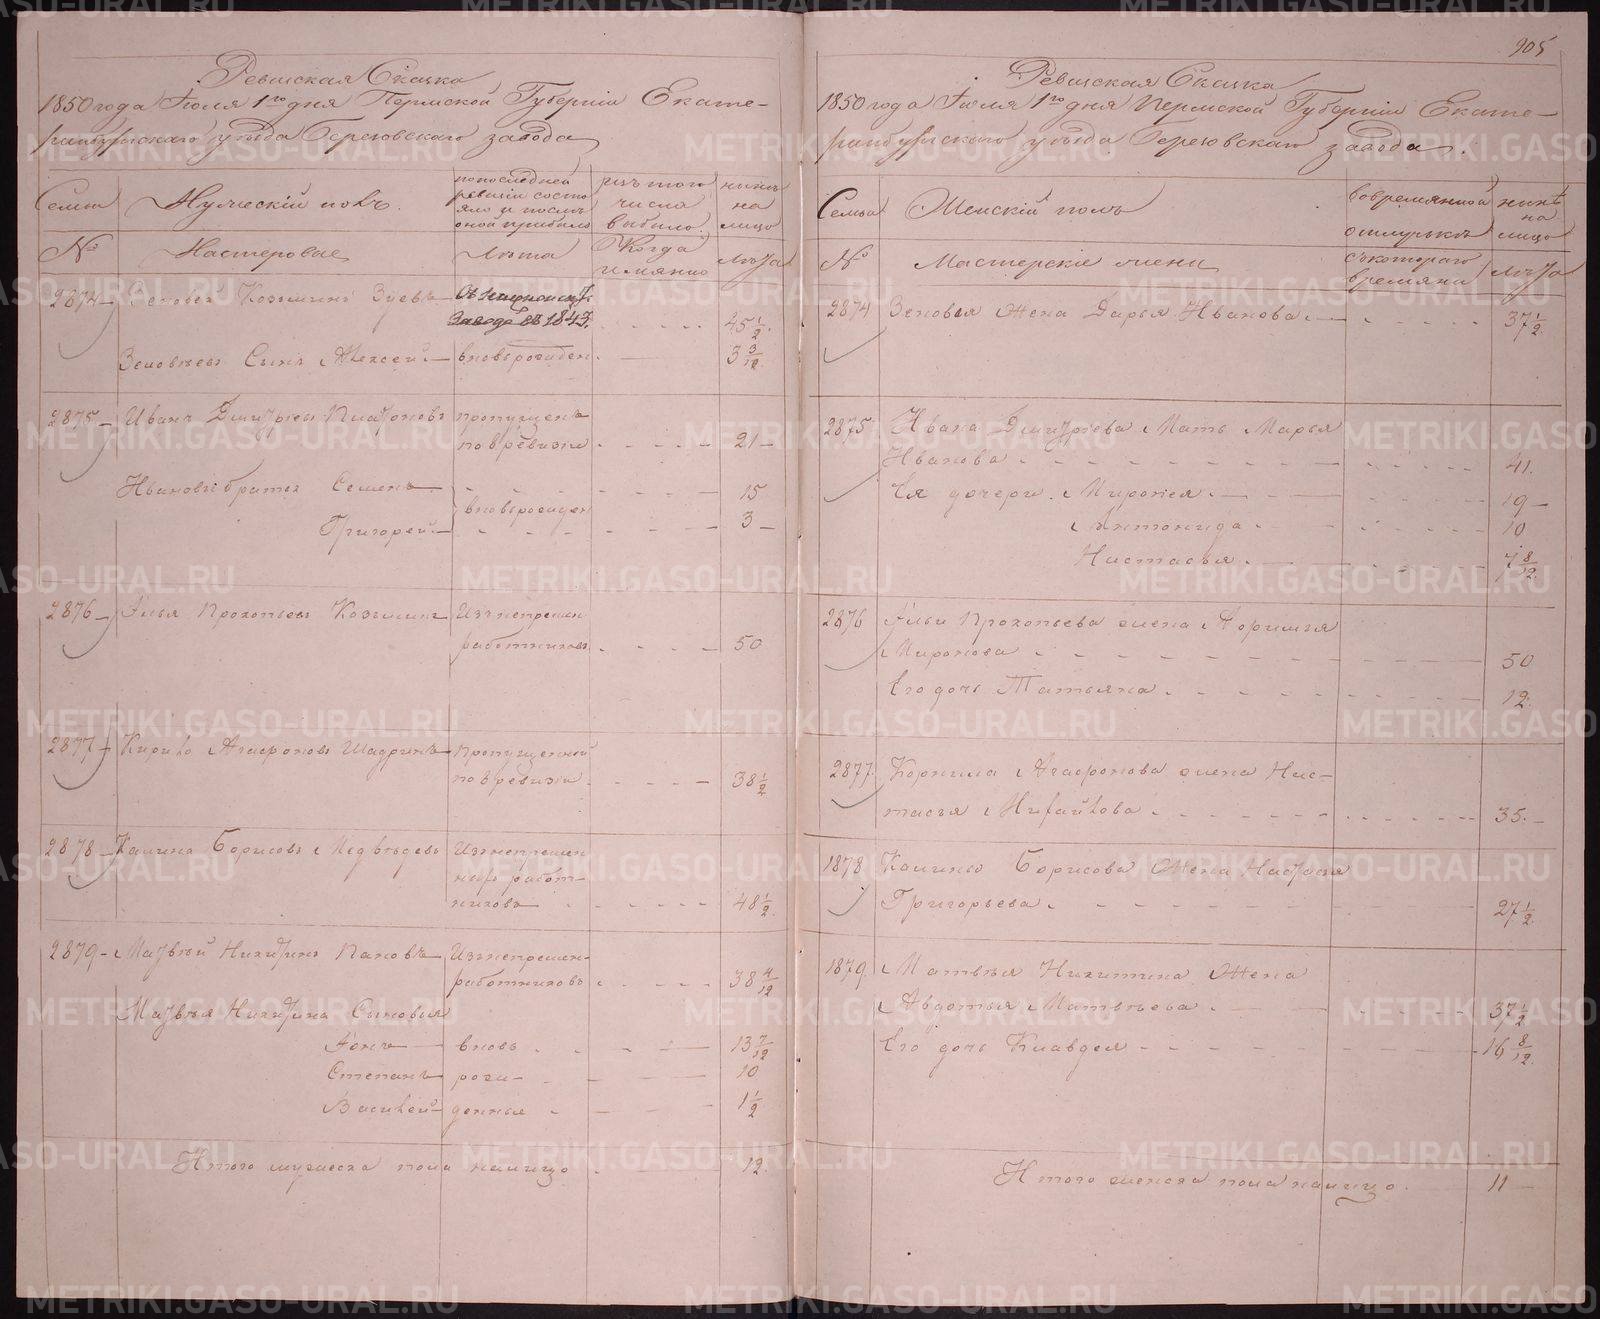 Ревизская Сказка
1850 года Июля 1го дня Пермской Губерніи Екате-
ринбургскаго уѣзда Березовскаго завода
Семьи
Мужескій полъ.
попоследней
ревизіи состо
яло и послѣ
оной прибыло
изъ того
числа
выбыло.
нынѣ
на
лицо
№
Мастеровые
Лѣта
Когда
имянно
Лѣта
2874 Зеновей Козьминъ Зуевъ
Заводъ въ 1847.
45 1/2.
Зеновьевъ Сынъ Алексей вновьрожден 3 3/12.
2875 Иванъ Дмитріевъ Платоновъ пропущенъ
по ревизіи 21
Ивановы братья Семенъ 15
вновьрожден
Григорей 3
2876 Илья Прокопьевъ Козьминъ Изънепремен
работниковъ 50
2877 Кирило Агафоновъ Шадринъ Пропущенный
по ревизіи 38 1/2
2878 Калина Борисовъ Медвѣдевъ Изънепремен
ныхъ работ-
никовъ 48 1/2.
2879 Матвѣй Никитинъ Пановъ Изънепремен-
работниковъ 38 4/12
Матвѣя Никитина Сыновья
вновь 13 7/12
Степанъ рож- 10
Василей денные 1 1/2
Итого мужеска пола налицо 12.
905
Ревизская Сказка
1850 года Июля 1го дня Пермской Губерніи Екате-
ринбургскаго уѣзда Березовскаго завода.
Семьи
Женскій полъ
вовремянной
отлучкѣ
нынѣ
на
лицо
№
Мастерскіе жены
съкотораго
времяни
Лѣта
2874 Зеновья Жена Дарья Иванова 37 1/2.
2875 Ивана Дмитріева Мать Марья
Иванова 41.
Ея дочери. 19
Антонида 10
Настасья 7 8/12.
2876 Ильи Прокопьева жена
Миронова 50
Его дочь Татьяна 12.
2877. Корнила Агафонова жена Нас-
тасья Михайлова 35.
1878 Калины Борисова Жена Настасья
Григорьева 27 1/2.
1879. Матвѣя Никитина Жена
Авдотья Матвѣева 37 1/2
Его дочь Клавдея 16 8/12.
Итого женска пола налицо. 11
METRIKI.GASO-URAL.RU